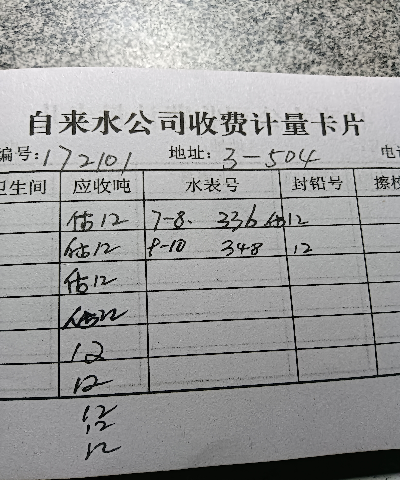 自来水公司收费计量卡片
编号:172101 地址:3-504 电
卫生间 应收吨 水表号 封铅号 擦
估12 7-8. 336 估12
估12 8-10 348 12
估12
估12
12
12
12
12
12